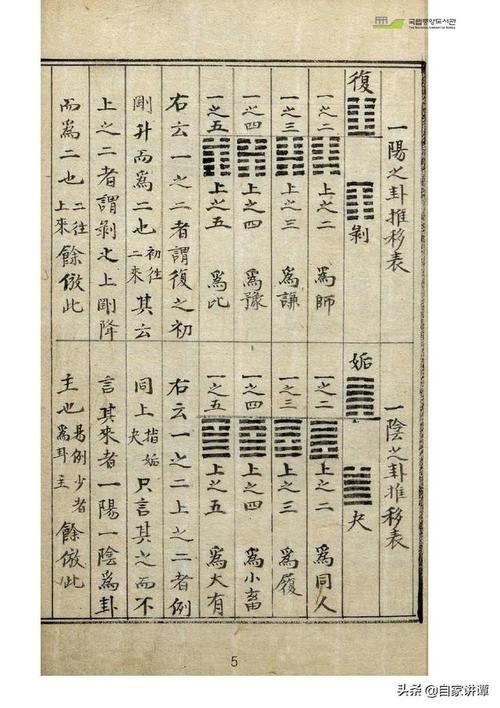 국립중앙도서관
THE NATIONAL LIBRARY OF KOREA
一陽之卦推移表
復 剝
一之二 上之二 爲師
一之三 上之三 爲謙
一之四 上之四 爲豫
一之五 上之五 爲比
右云一之二者謂復之初
剛升而爲二也初往二來其云
上之二者謂剝之上剛降
而爲二也二往上來餘倣此
一陰之卦推移表
姤 夬
一之二 上之二 爲同人
一之三 上之三 爲履
一之四 上之四 爲小畜
一之五 上之五 爲大有
右云一之二上之二者例
同上指姤夬只言其之而不
言其來者一陽一陰爲卦
主也易例少者爲卦主餘倣此
5
头条 @自家讲谭